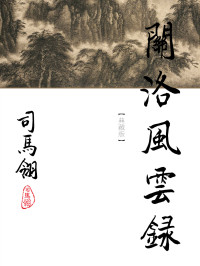 關洛風雲録
【典藏版】
司馬翎